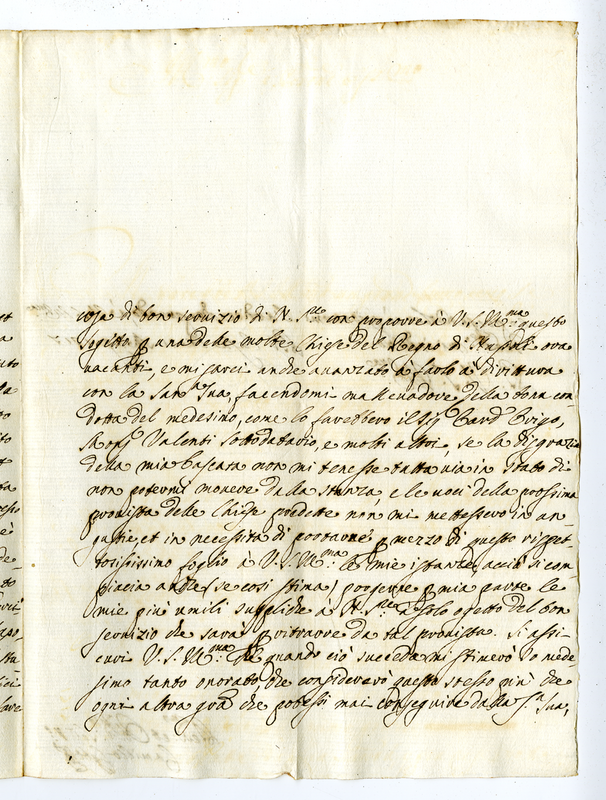 cosa di bon servizio di N. Sre con proporre à V. S. Illma questo
sogetto p una delle molte Chiese del Regno di Napoli ora
vacanti, e mi sarei anche avanzato a farlo à dirittura
con la Santa Sua, facendomi mallevadore della bona con-
dotta del medesimo, come lo farebbero il Sigr Card.
Monsr Valenti Sottodatario, e molti altri, se la disgrazia
della mia cascata non mi tenesse tuttavia in stato di
non potermi movere dalla stanza e le voci della prossima
provista delle Chiese predette non mi mettessero in an-
gustie, et in necessità di portarne p mezzo di questo rispet-
tosissimo foglio à V. S. Illma le mie istanze, acciò si com-
piacia anche (se così stima) porgerne p mia parte le
mie più umili suppliche à N. Sre à solo ogetto del bon
servizio che sarà p ritrarre da tal provista. Si assi-
curi V. S. Illma che quando ciò succeda mi stimerò io mede-
simo tanto onorato che considererò questo stesso più che
ogni altra gra che potessi mai conseguire dalla Sta Sua,